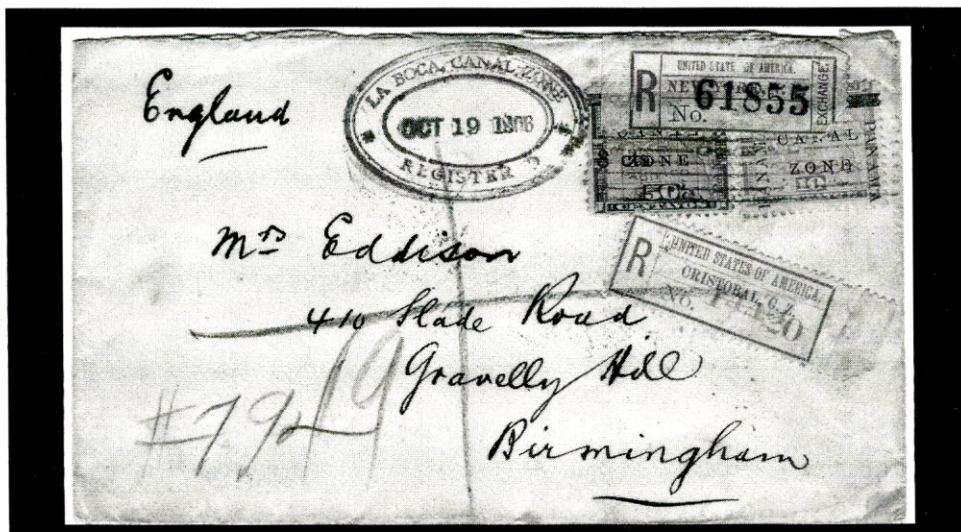 England
LA BOCA, CANAL ZONE
OCT 19 1906
REGISTER
R
UNITED STATE OF AMERICA.
NEW
No. 61855
EXCHANGE
CANAL
ZONE
50
CANAL
ZONE
PANAMA
PANAMA
R
UNITED STATES OF AMERICA.
CRISTOBAL, C. Z.
No.
Mrs Eddison
410 Slade Road
Gravelly Hill
Birmingham